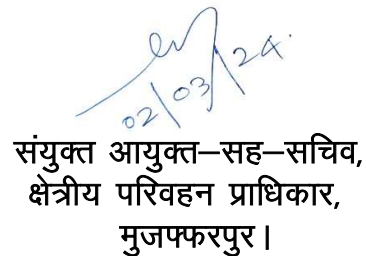 02/03/24.
संयुक्त आयुक्त–सह–सचिव,
क्षेत्रीय परिवहन प्राधिकार,
मुजफ्फरपुर।